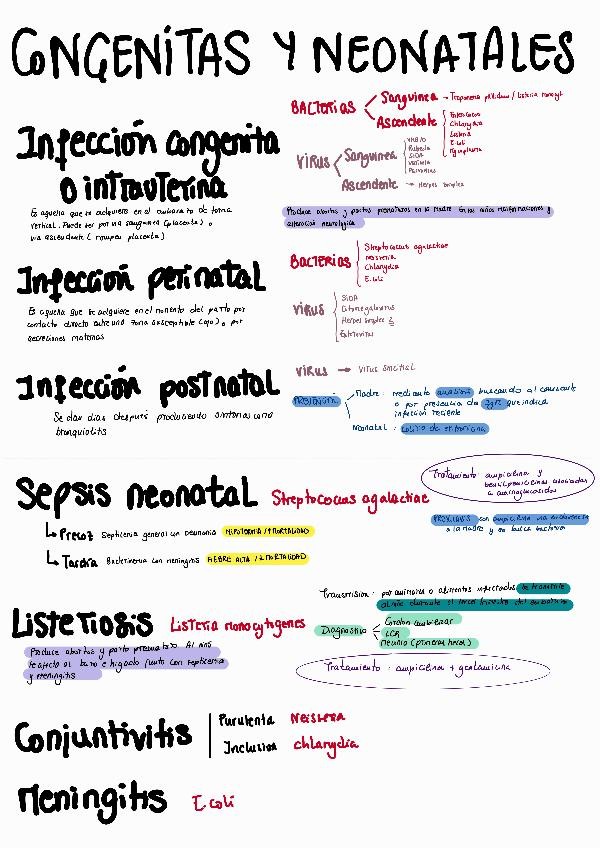 CONGENITAS Y NEONATALES
Infección congenita
o intrauterina
Es aquella que se adquiere en el embarazo de forma
vertical. Puede ser por via sanguinea (placenta) o
via ascendente ( rompen placenta)
BACTERIAS
Sanguinea → Treponema pallidum / listeria monocyt
Ascendente
Enterococos
Chlamydia
Listeria
E. coli
Mycoplasma
VIRUS
Sanguinea
Rubeola
SIDA
Varicela
Parvovirus
Ascendente → Herpes simplex
Produce abortos y partos prematuros en la madre En los niños malformaciones y
alteracion neurologica
Infección perinatal
Es aquella que se adquiere en el momento del parto por
contacto directo sobre una zona susceptible (ojo) o por
secreciones maternas
BACTERIAS
Streptococcus agalactiae
neisseria
Chlamydia
E. coli
VIRUS
SIDA
Citomegalovirus
Herpes simplex 2
Enterovirus
Infección postnatal
Se dan dias después produciendo sintomas como
bronquiolitis
VIRUS → Virus sincitial
Madre: mediante buscando al causante
o por presencia de IgM que indica
infección reciente
Neonatal: cultivo de
Sepsis neonatal Streptococcus agalactiae
Tratamiento: ampicilina y
bencilpenicilinas asociadas
a aminoglucosidos
↳ Precoz Septicemia general con neumonia HIPOTERMIA / ↑ MORTALIDAD
↳ Tardia Bacteriemia con meningitis FIEBRE ALTA / ↓ MORTALIDAD
PROFILAXIS con ampicilina via endovenosa
a la madre y se busca bacteria
Listeriosis Listeria monocytogenes
Produce abortos y parto prematuro. Al niño
le afecta al bazo e higado junto con septicemia
y meningitis
Transmision: por animales o alimentos infectados se transmite
al niño durante el tercer trimestre del embarazo
Diagnostico
Cordon umbilical
LCR
Meconio (primeras heces)
Tratamiento: ampicilina + gentamicina
Conjuntivitis
Purulenta Neisseria
Inclusion chlamydia
Meningitis E. coli